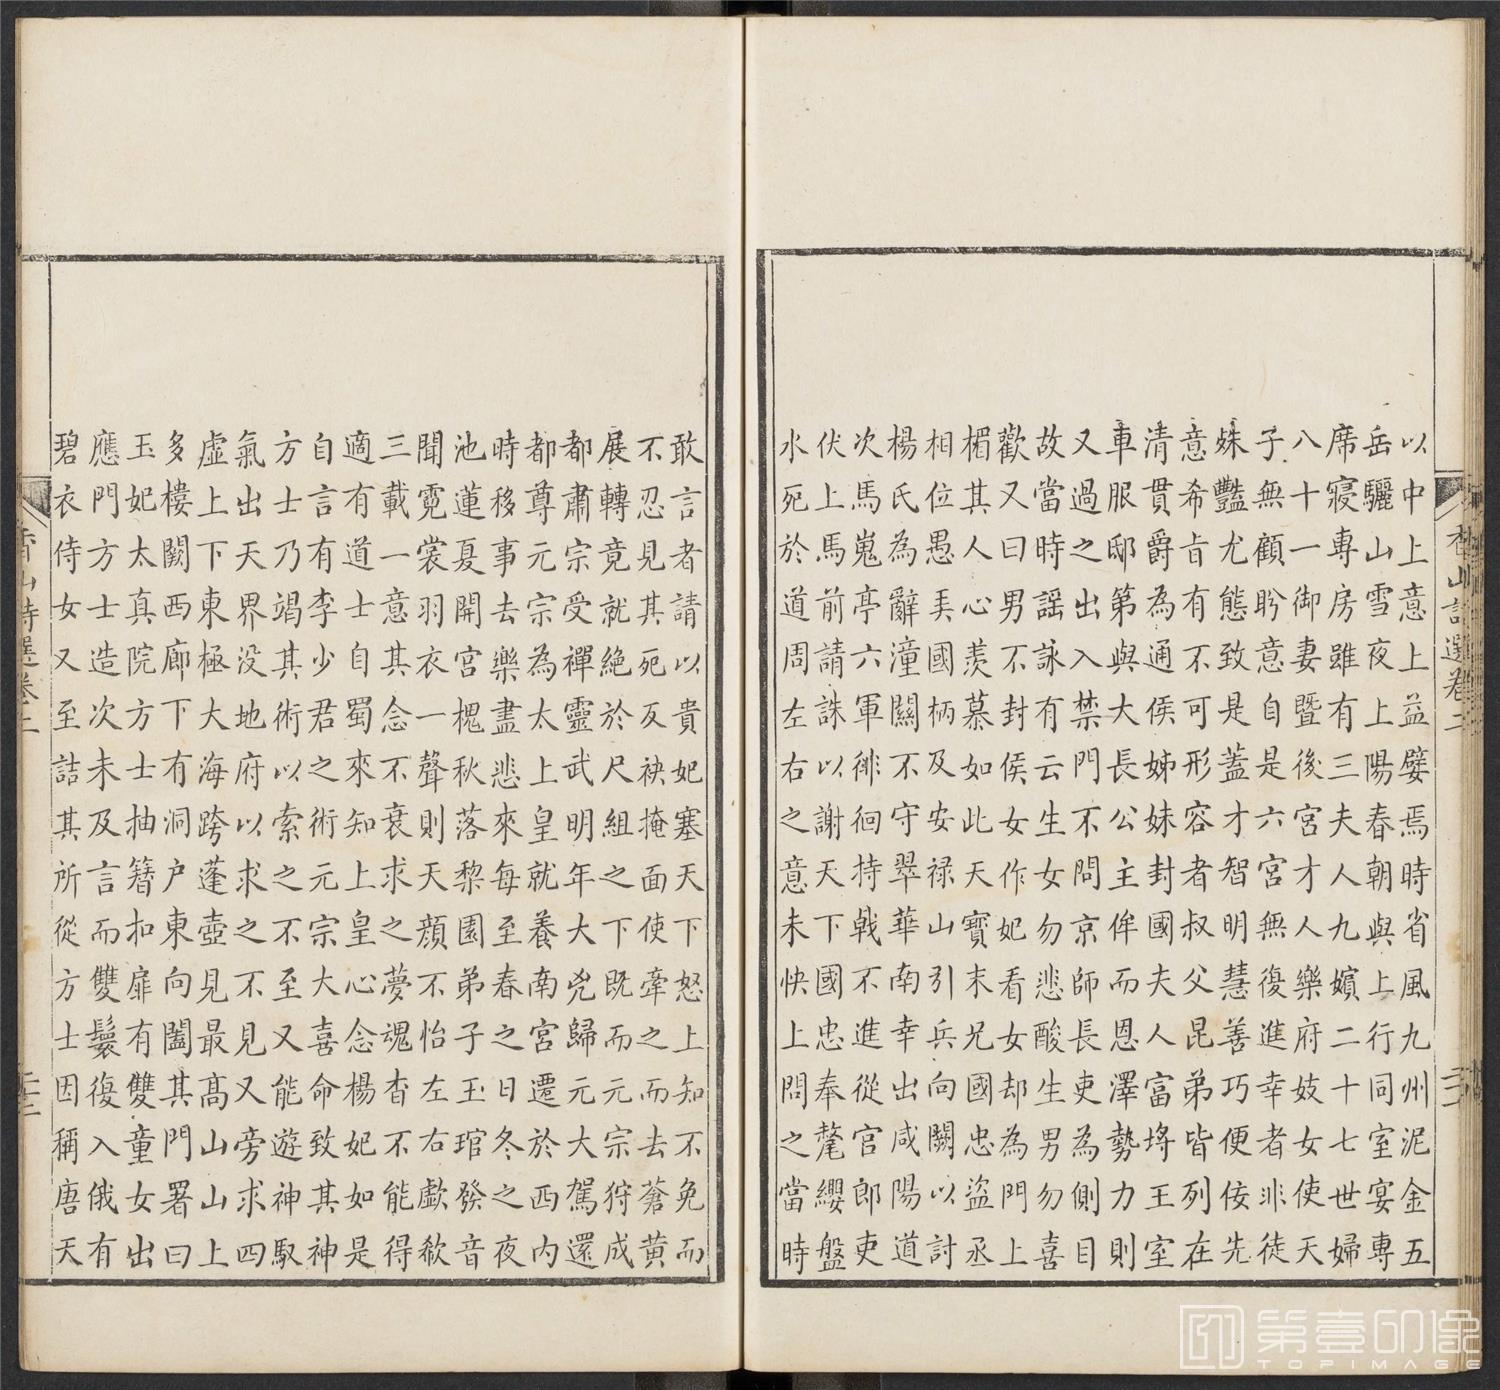 以中上意上益嬖焉時省風九州泥金五
岳驪山雪夜上陽春朝與上行同室宴專
席寢專房雖有三夫人九嬪二十七世婦
八十一御妻暨後宮才人樂府妓女使天
子無顧盼意自是六宮無復進幸者非徒
姝艷尤態致是蓋才智明慧善巧便佞先
意希旨有不可形容者叔父昆弟皆列在
清貫爵為通侯姊妹封國夫人富埒王室
車服邸第與大長公主侔而恩澤勢力則
又過之出入禁門不問京師長吏為側目
故當時謠詠有云生女勿悲酸生男勿喜
歡又曰男不封侯女作妃看女却為門上
楣其人心羨慕如此天寶末兄國忠盜丞
相位愚弄國柄及安祿山引兵向關以討
楊氏為辭潼關不守翠華南幸出咸陽道
次馬嵬亭六軍徘徊持戟不進從官郎吏
伏上馬前請誅以謝天下國忠奉氂纓盤
水死於道周左右之意未快上問之當時
敢言者請以貴妃塞天下怒上知不免而
不忍見其死反袂掩面使牽之而去蒼黃
展轉竟就絕於尺組之下既而元宗狩成
都肅宗受禪靈武明年大兇歸元大駕還
都尊元宗為太上皇就養南宮遷於西內
時移事去樂盡悲來每至春之日冬之夜
池蓮夏開宮槐秋落黎園弟子玉琯發音
聞霓裳羽衣一聲則天顏不怡左右歔欷
三載一意其念不衰求之夢魂杳不能得
適有道士自蜀來知上皇心念楊妃如是
自言有李少君之術元宗大喜命致其神
方士乃竭其術以索之不至又能遊神馭
氣出天界没地府以求之不見又旁求四
虛上下東極大海跨蓬壺見最高山山上
多樓闕西廊下有洞戶東向闔其門署曰
玉妃太真院方士抽簪扣扉有雙童女出
應門方士造次未及言而雙鬟復入俄有
碧衣侍女又至詰其所從方士因稱唐天
香山詩選卷二
第壹印像
TOPIMAGE